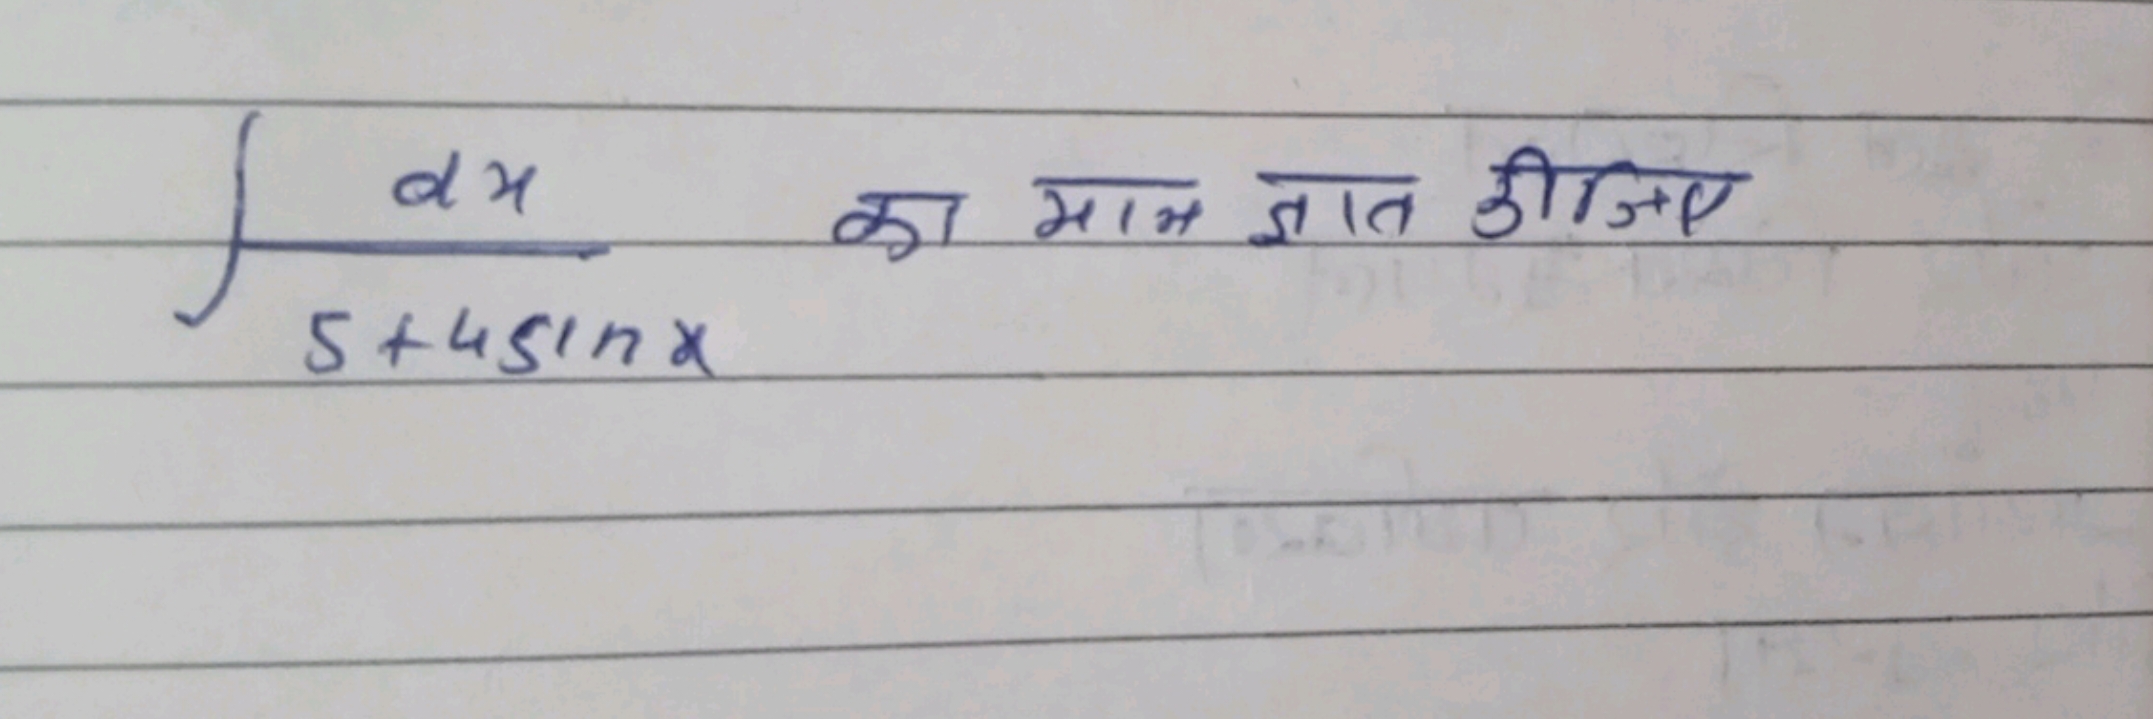 ∫ dx / 5+4sinx का मान ज्ञात कीजिए